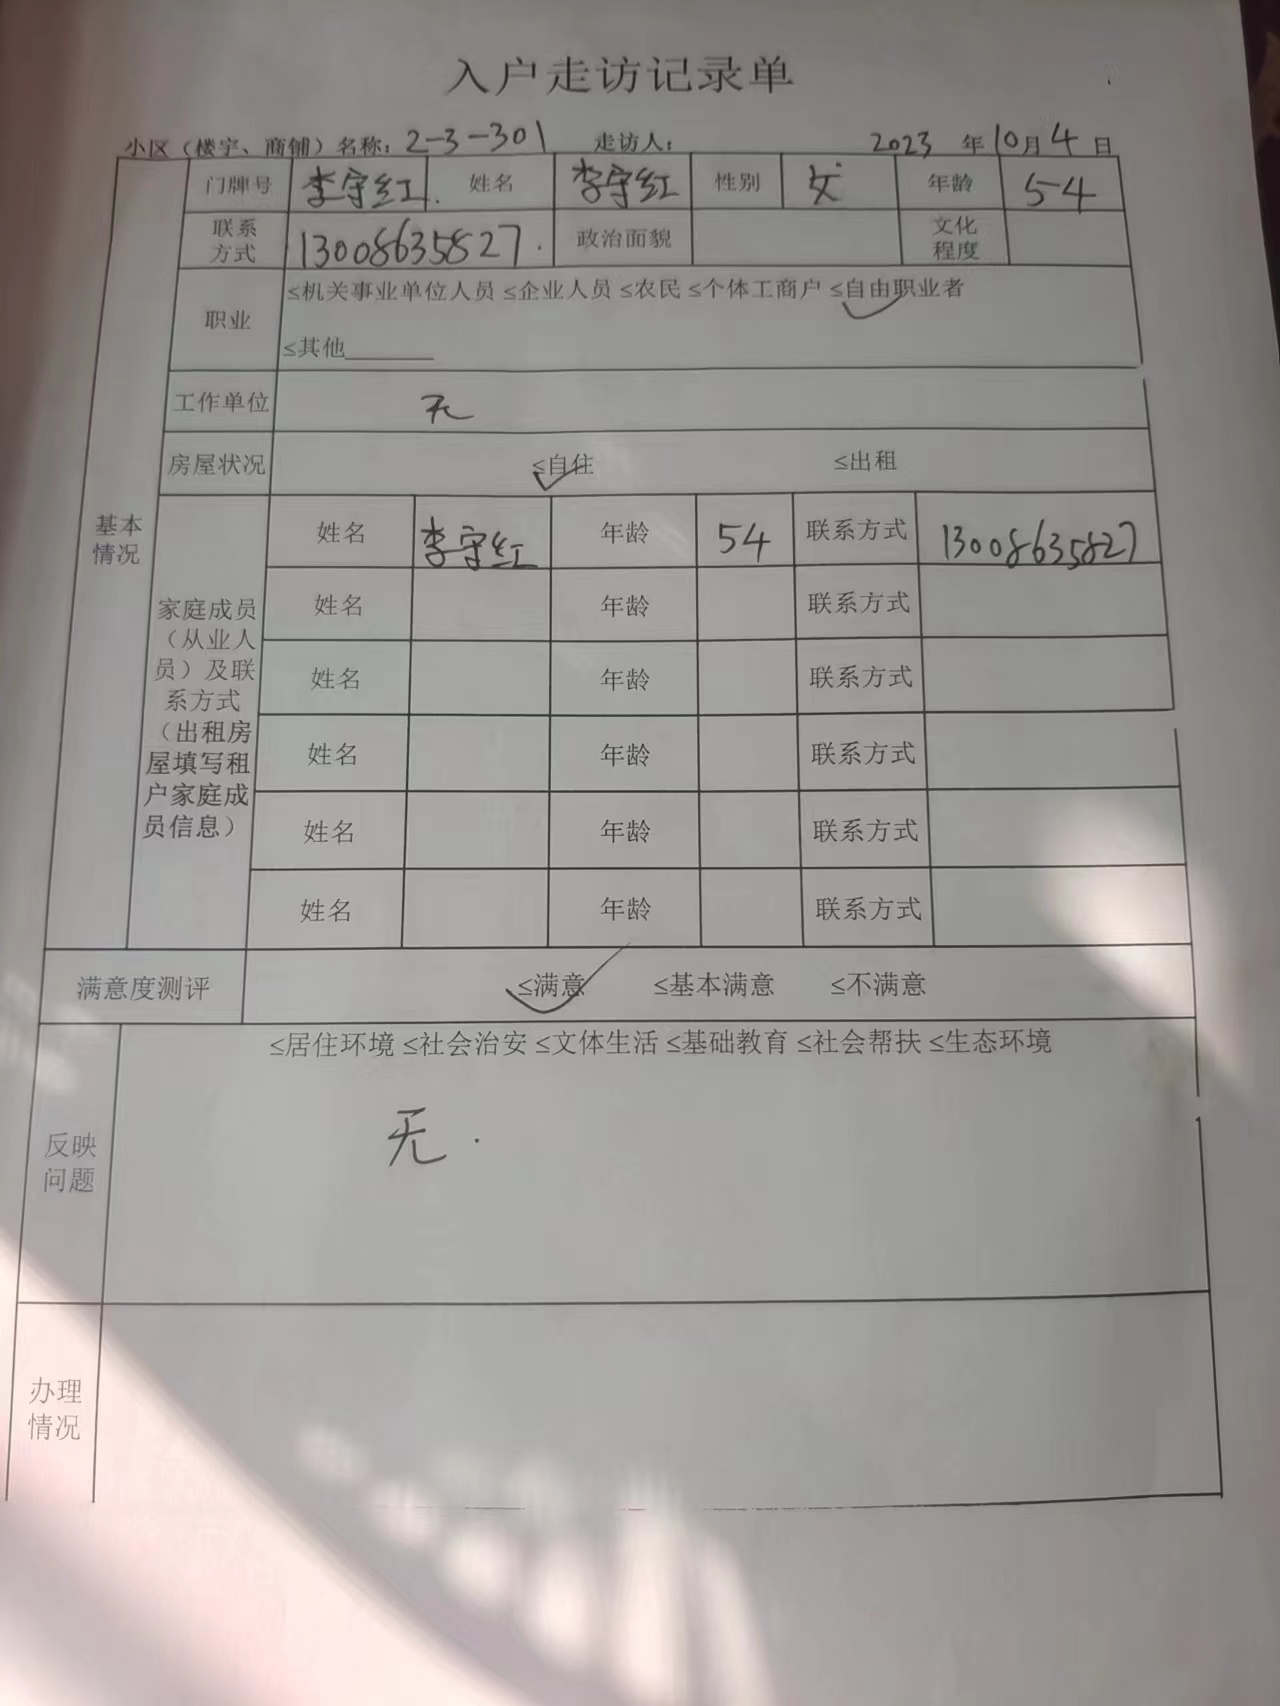 入户走访记录单
小区（楼宇、商铺）名称：2-3-301 走访人： 2023 年10月4日
门牌号 李守红. 姓名 李守红 性别 女 年龄 54
联系方式 13008635827. 政治面貌 文化程度
职业 ≤机关事业单位人员 ≤企业人员 ≤农民 ≤个体工商户 ≤自由职业者
≤其他______
工作单位 无
房屋状况 ≤自住 ≤出租
基本情况
家庭成员（从业人员）及联系方式（出租房屋填写租户家庭成员信息）
姓名 李守红 年龄 54 联系方式 13008635827
姓名 年龄 联系方式
姓名 年龄 联系方式
姓名 年龄 联系方式
姓名 年龄 联系方式
姓名 年龄 联系方式
满意度测评 ≤满意 ≤基本满意 ≤不满意
≤居住环境 ≤社会治安 ≤文体生活 ≤基础教育 ≤社会帮扶 ≤生态环境
反映问题 无.
办理情况